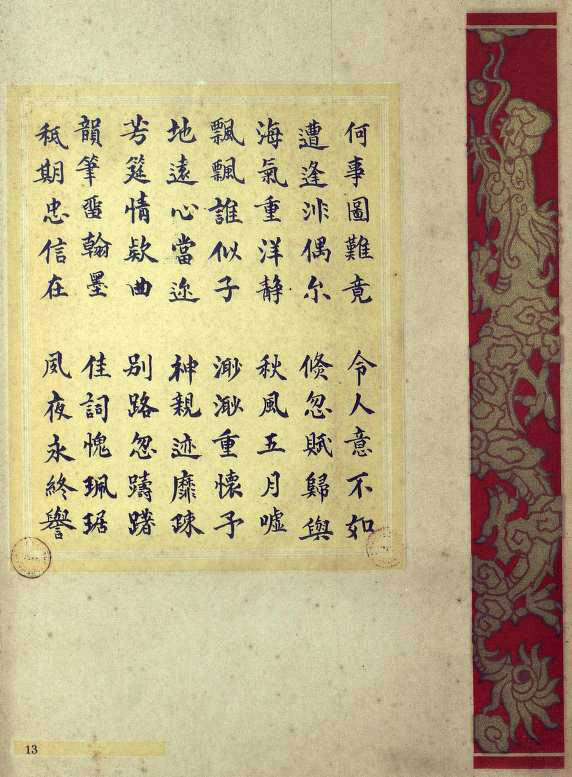 何事圖難竟 令人意不如
遭逢非偶尔 倐忽賦歸與
海氣重洋静 秋風五月嘘
飄飄誰似子 渺渺重懷予
地遠心當迩 神親迹靡疎
芳筵情欵曲 別路忽躊躇
韻筆蜚翰墨 佳詞愧珮琚
秖期忠信在 夙夜永終譽
13